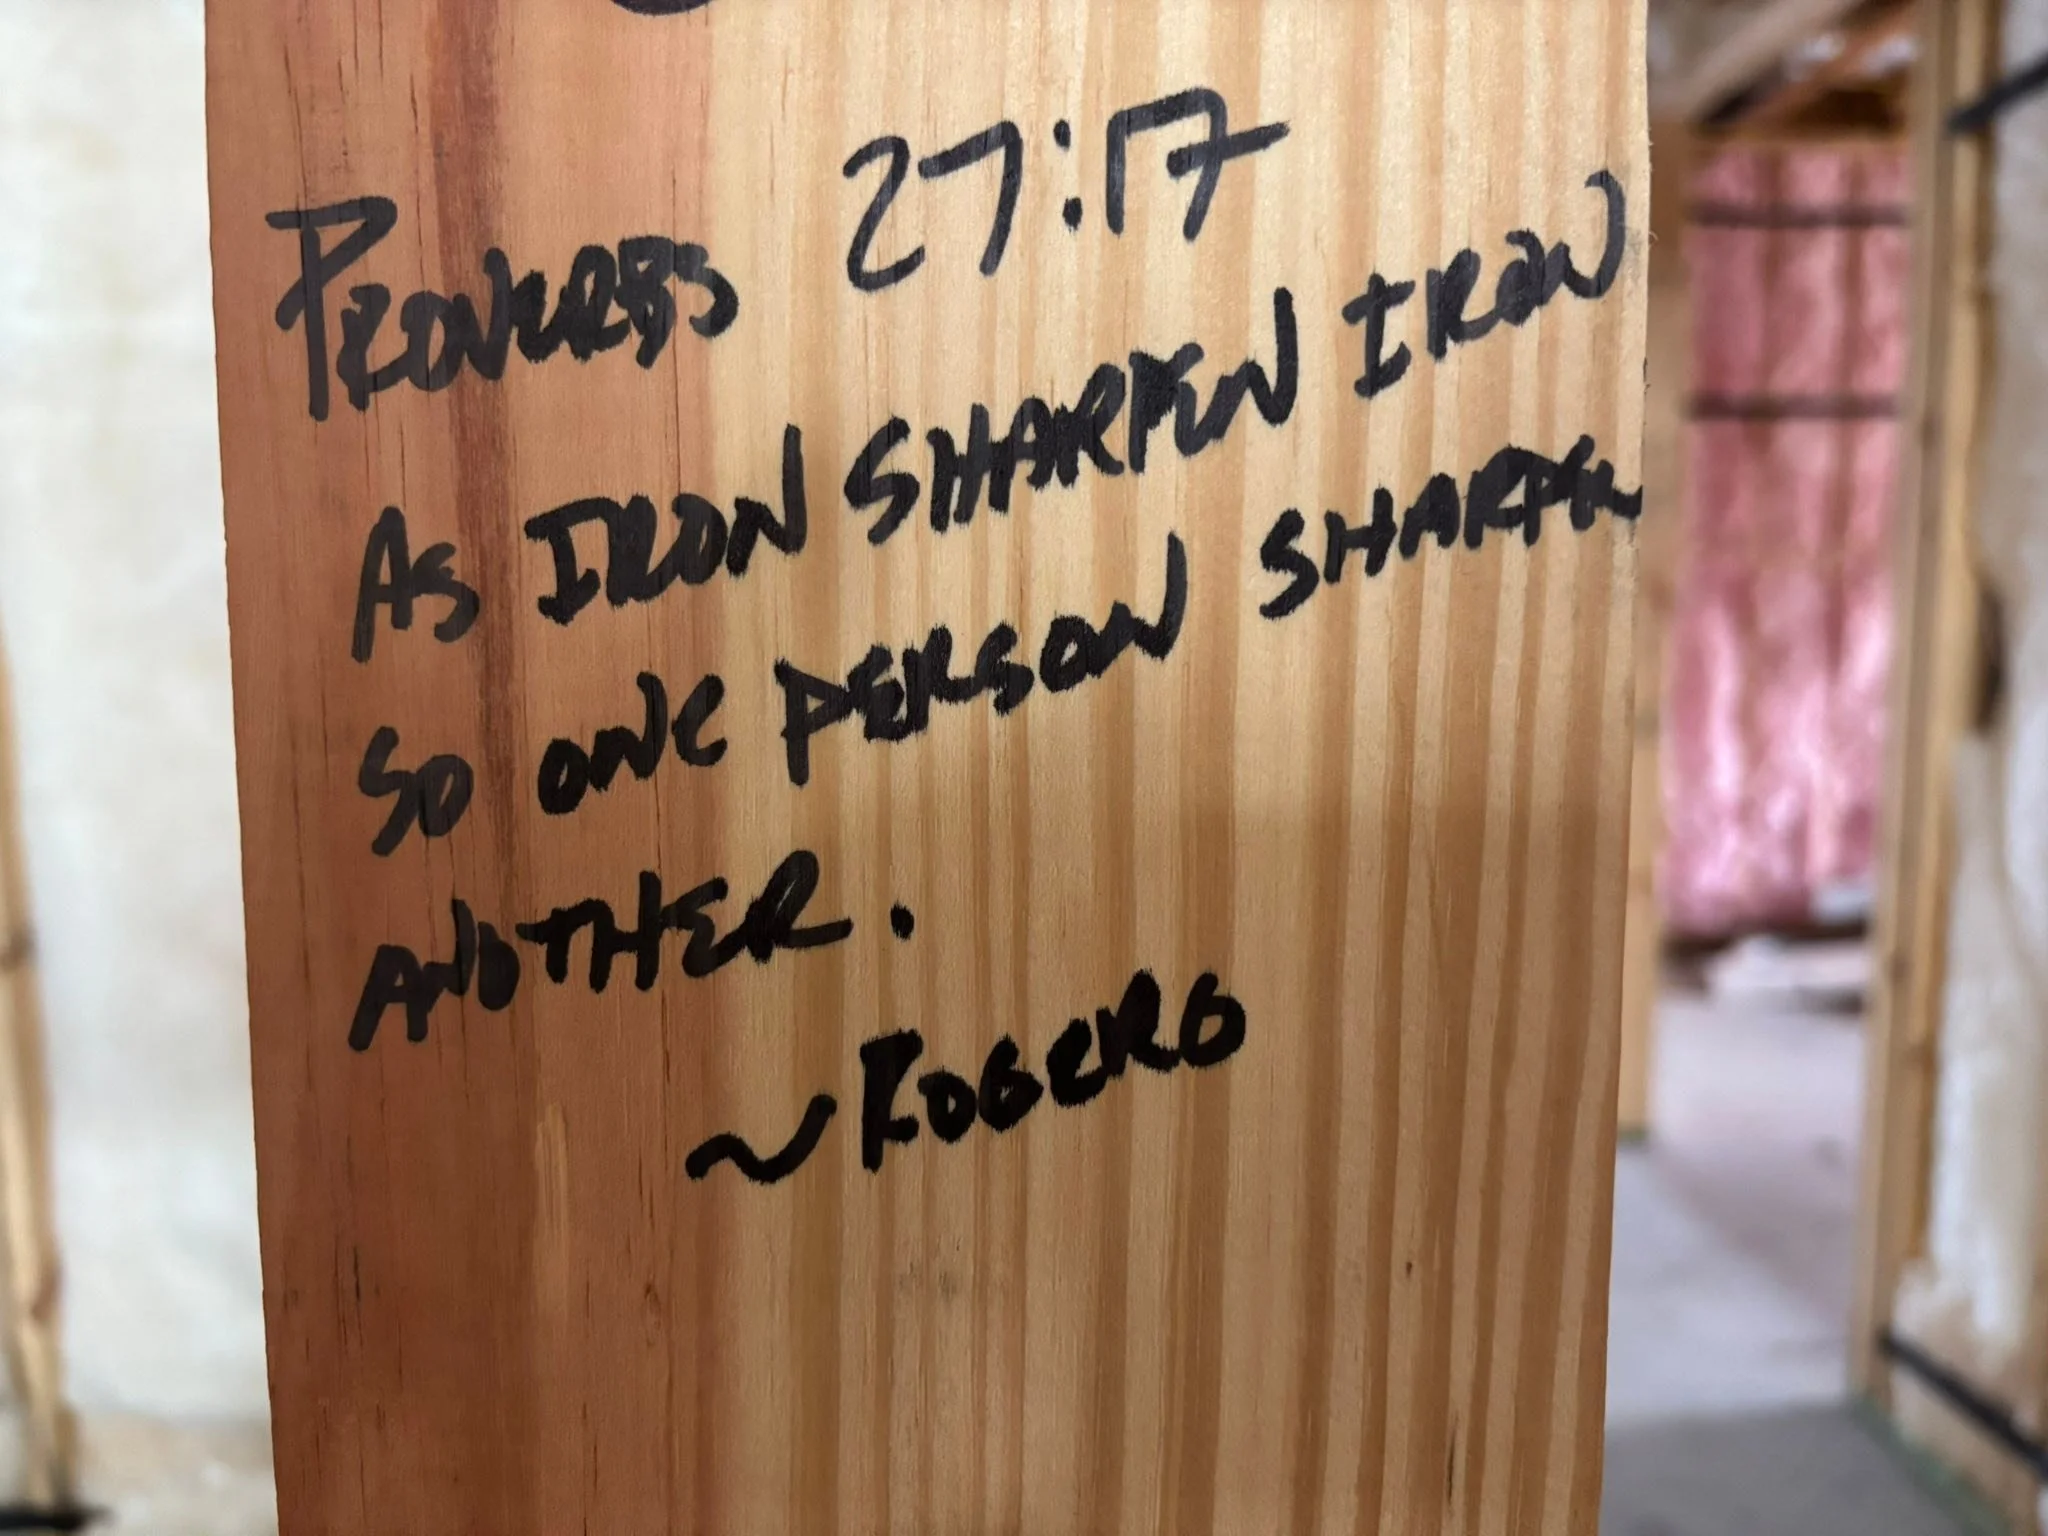 PROVERBS 27:17
AS IRON SHARPEN IRON
SO ONE PERSON SHARPEN
ANOTHER.
~ROGERS